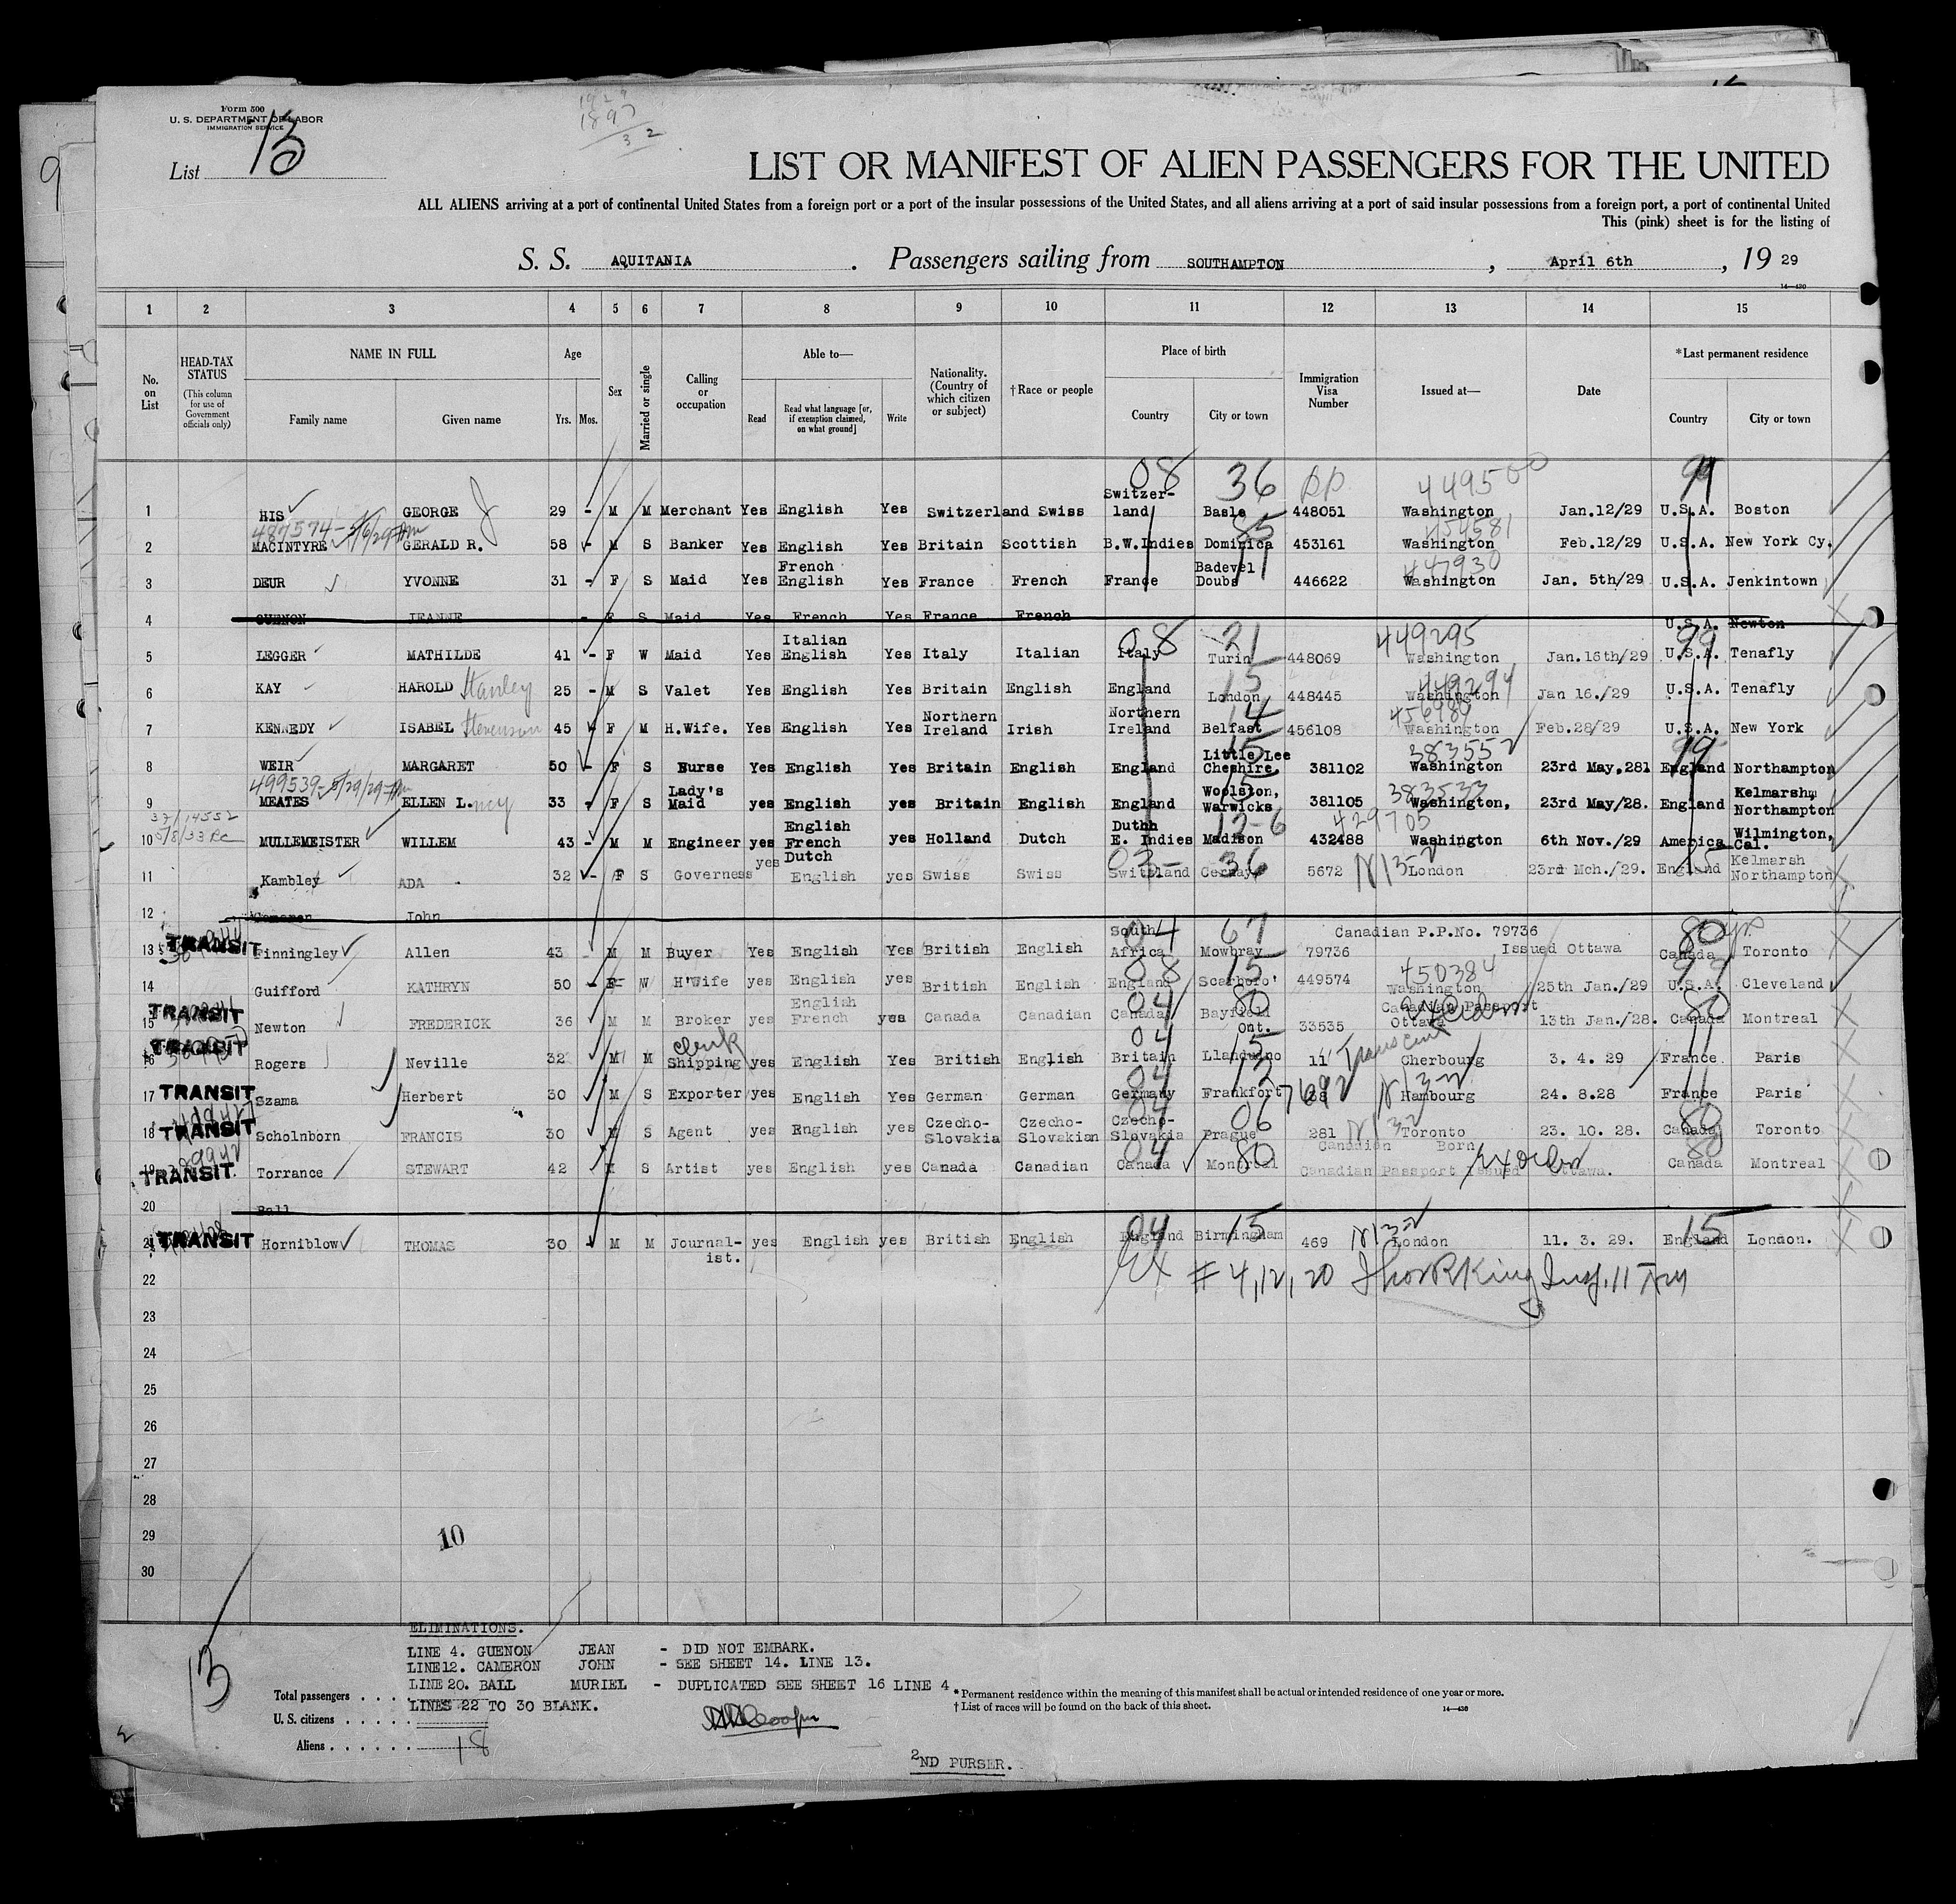 Form 500
U. S. DEPARTMENT OF LABOR
IMMIGRATION SERVICE
1897
32
List 13
9
LIST OR MANIFEST OF ALIEN PASSENGERS FOR THE UNITED
ALL ALIENS arriving at a port of continental United States from a foreign port or a port of the insular possessions of the United States, and all aliens arriving at a port of said insular possessions from a foreign port, a port of continental United
This (pink) sheet is for the listing of
S. S. AQUITANIA. Passengers sailing from SOUTHAMPTON, April 6th, 19 29
14—430
1 2 3 4 5 6 7 8 9 10 11 12 13 14 15
No. on List
HEAD-TAX STATUS (This column for use of Government officials only)
NAME IN FULL Family name Given name
Age Yrs. Mos.
Sex
Married or single
Calling or occupation
Able to— Read Read what language [or, if exemption claimed, on what ground] Write
Nationality. (Country of which citizen or subject)
†Race or people
Place of birth Country City or town
Immigration Visa Number
Issued at—
Date
*Last permanent residence Country City or town
08 36 PP 449500 99
1 HIS GEORGE J 29 - M M Merchant Yes English Yes Switzerland Swiss Switzer-land Basle 448051 Washington Jan.12/29 U.S.A. Boston
487574-5/6/29 85 454581
2 MACINTYRE GERALD R. 58 - M S Banker Yes English Yes Britain Scottish B.W.Indies Dominica 453161 Washington Feb.12/29 U.S.A. New York Cy.
447930
3 DEUR YVONNE 31 - F S Maid Yes French English Yes France French France Badevel Doubs 446622 Washington Jan. 5th/29 U.S.A. Jenkintown
4 GUENON JEANNE - F S Maid Yes French Yes France French U.S.A. Newton
08 21 449295 99
5 LEGGER MATHILDE 41 - F W Maid Yes Italian English Yes Italy Italian Italy Turin 448069 Washington Jan.16th/29 U.S.A. Tenafly
15 449294
6 KAY HAROLD Stanley 25 - M S Valet Yes English Yes Britain English England London 448445 Washington Jan 16./29 U.S.A. Tenafly
14
7 KENNEDY ISABEL Stevenson 45 F M H.Wife. Yes English Yes Northern Ireland Irish Northern Ireland Belfast 456108 Washington Feb.28/29 U.S.A. New York
15 383552
8 WEIR MARGARET 50 - F S Nurse Yes English Yes Britain English England Little Lee Cheshire 381102 Washington 23rd May,281 England Northampton
499539-8/29/29 15 383533
9 MEATES ELLEN L.ncy 33 - F S Lady's Maid yes English yes Britain English England Woolston, Warwicks 381105 Washington, 23rd May/28. England Kelmarsh, Northampton
37/14552 5/8/33 12-6 429705
10 MULLEMEISTER WILLEM 43 - M M Engineer yes English French Dutch yes Holland Dutch Dutch E. Indies Madison 432488 Washington 6th Nov./29 America Wilmington, Cal.
03- 36
11 Kambley ADA 32 - F S Governess yes English yes Swiss Swiss Switzland Cernay 5672 London 23rd Mch./29. England Kelmarsh Northampton
12 Cameron John
04 67 Canadian P.P.No. 79736 80
13 TRANSIT Finningley Allen 43 M M Buyer Yes English Yes British English South Africa Mowbray 79736 Issued Ottawa Canada Toronto
08 15 450384 99
14 Guifford KATHRYN 50 - F W H'Wife yes English yes British English England Scarboro' 449574 Washington 25th Jan./29 U.S.A. Cleveland
04 80 80
15 TRANSIT Newton FREDERICK 36 M M Broker yes English French yes Canada Canadian Canada Bayfield Ont. 33535 Canadian Passport Ottawa 13th Jan./28. Canada Montreal
04 15 Transcint 11
16 TRANSIT Rogers Neville 32 M M Clerk Shipping yes English Yes British English Britain Llandudno 11 Cherbourg 3. 4. 29 France Paris
04 12 11
17 TRANSIT Szama Herbert 30 M S Exporter yes English Yes German German Germany Frankfort 38 Hambourg 24. 8.28 France Paris
04 06 80
18 TRANSIT Scholnborn FRANCIS 30 M S Agent yes English yes Czecho-Slovakia Czecho-Slovakian Czecho-Slovakia Prague 281 Toronto 23. 10. 28. Canada Toronto
04 80 80
19 TRANSIT. Torrance STEWART 42 M S Artist yes English yes Canada Canadian Canada Montreal Canadian Born Canadian Passport Issued Ottawa. Canada Montreal
20 Ball
04 15 15
21 TRANSIT Horniblow THOMAS 30 M M Journal-ist. yes English yes British English England Birmingham 469 London 11. 3. 29. England London.
22 Ex # 4, 12, 20 Thos R King Insp.
23
24
25
26
27
28
29
30
10
13
ELIMINATIONS.
LINE 4. GUENON JEAN - DID NOT EMBARK.
LINE12. CAMERON JOHN - SEE SHEET 14. LINE 13.
LINE20. BALL MURIEL - DUPLICATED SEE SHEET 16 LINE 4
LINES 22 TO 30 BLANK.
Total passengers . . . .
U. S. citizens . . . . .
Aliens . . . . . . 18
2ND PURSER.
* Permanent residence within the meaning of this manifest shall be actual or intended residence of one year or more.
† List of races will be found on the back of this sheet.
14—430